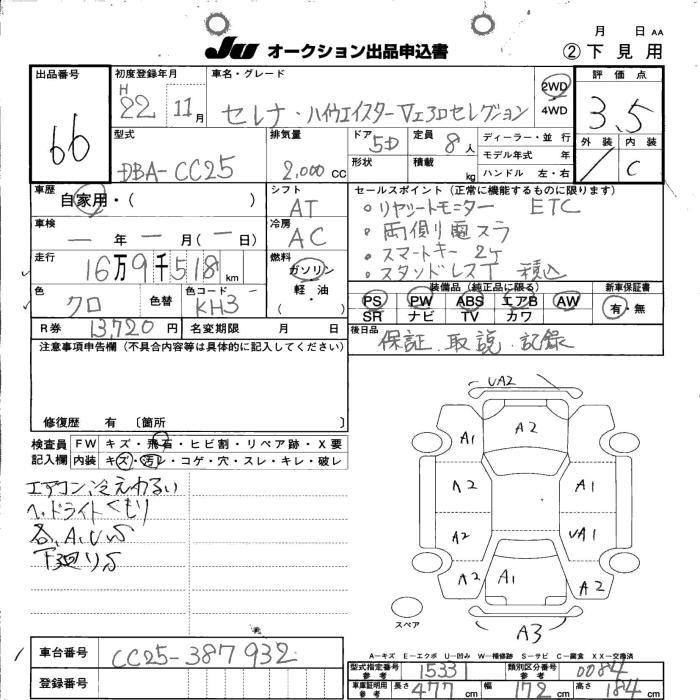 月 日 AA
JU オークション出品申込書
② 下見用
出品番号
66
初度登録年月
H 22 11月
車名・グレード
セレナ・ハイウエイスター VエアロセレクションS
2WD
4WD
評価点
3.5
外装 内装
/ C
型式
DBA-CC25
排気量
2,000 CC
ドア 5D
形状
定員 8人
積載 kg
ディーラー・並行
モデル年式 年
ハンドル 左・右
車歴
自家用・( )
シフト
AT
セールスポイント(正常に機能するものに限ります)
。リヤシートモニター ETC
。両側電スラ
。スマートキー 2ケ
。スタッドレスT 積込
車検
— 年 — 月(— 日)
冷房
AC
走行
16万9千518km
燃料
ガソリン
軽・油
・( )
色
クロ
色替
色コード
KH3
装備品(純正品に限る)
PS PW ABS エアB AW
SR ナビ TV カワ
新車保証書
有・無
R券 13,720円 名変期限 月 日
後日品
保証.取説.記録
注意事項申告欄(不具合内容等は具体的に記入してください)
修復歴 有〔箇所 〕
検査員
記入欄
FW キズ・飛石・ヒビ割・リペア跡・X要
内装 キズ・汚レ・コゲ・穴・スレ・キレ・破レ
エアコン、冷えわるい
ヘッドライトくもり
各、A,U,S
下廻りS
UA2
A1
A2
A2
A1
A2
UA1
A2
A1
A2
A3
スペア
A—キズ E—エクボ U—凹み W—補修跡 S—サビ C—腐食 XX—交換済
車台番号
CC25-387932
登録番号
型式指定番号
参考
1533
類別区分番号
参考
0084
車庫証明用
参考
長さ 477cm 幅 172cm 高さ 184cm